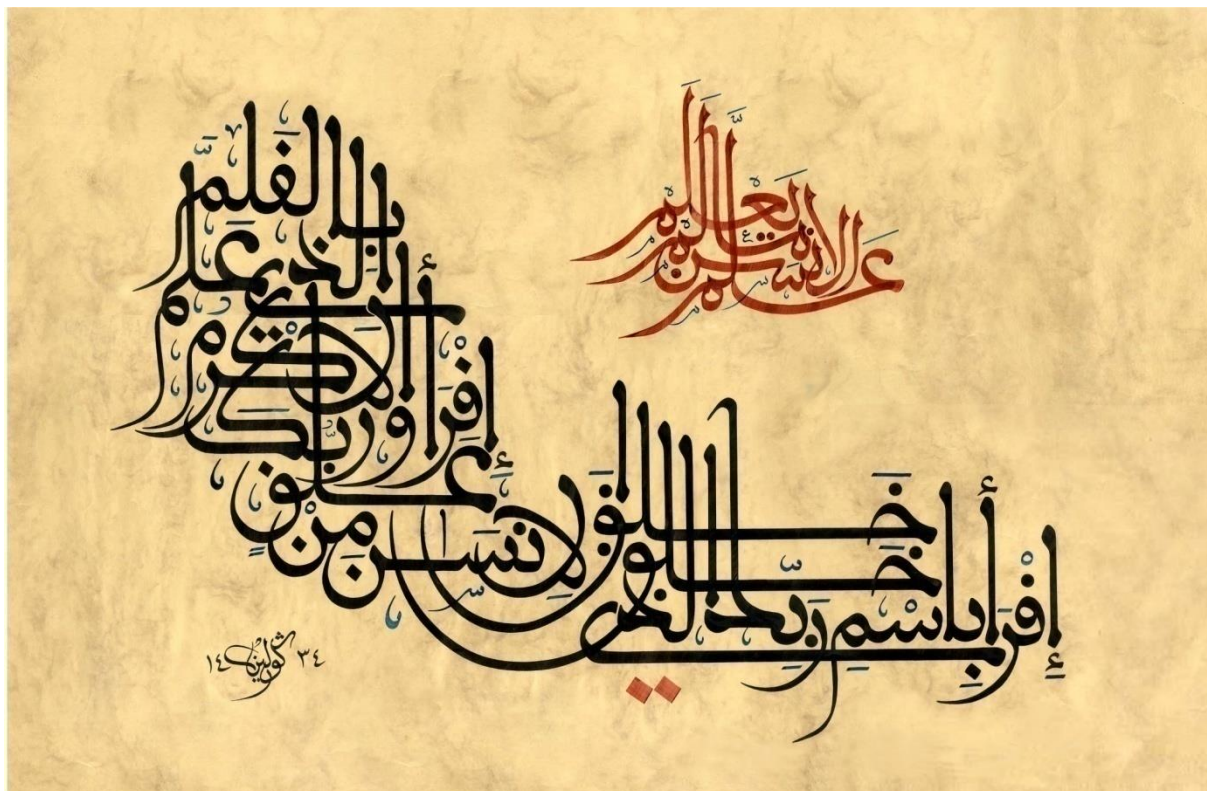 إقرأ باسم ربك الذي خلق
خلق الانسن من علق
إقرأ وربك الاكرم
الذي علم بالقلم
علم الانسن ما لم يعلم
١٤٣٤